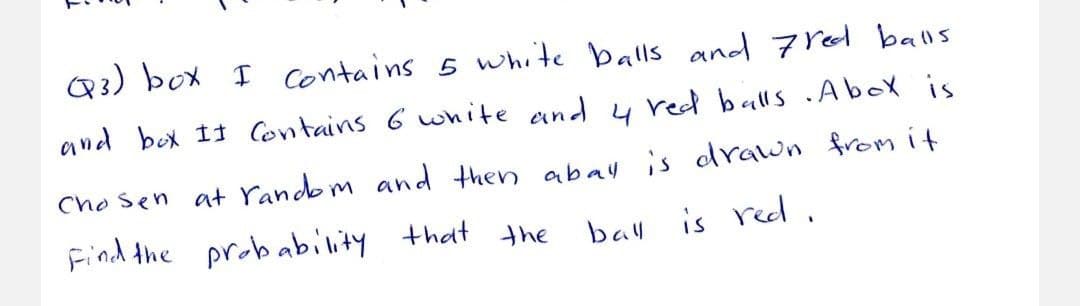 Q3) box I Contains 5 white balls and 7 red balls
and box II Contains 6 white and 4 red balls . A box is
Chosen at random and then a ball is drawn from it
Find the probability that the ball is red .